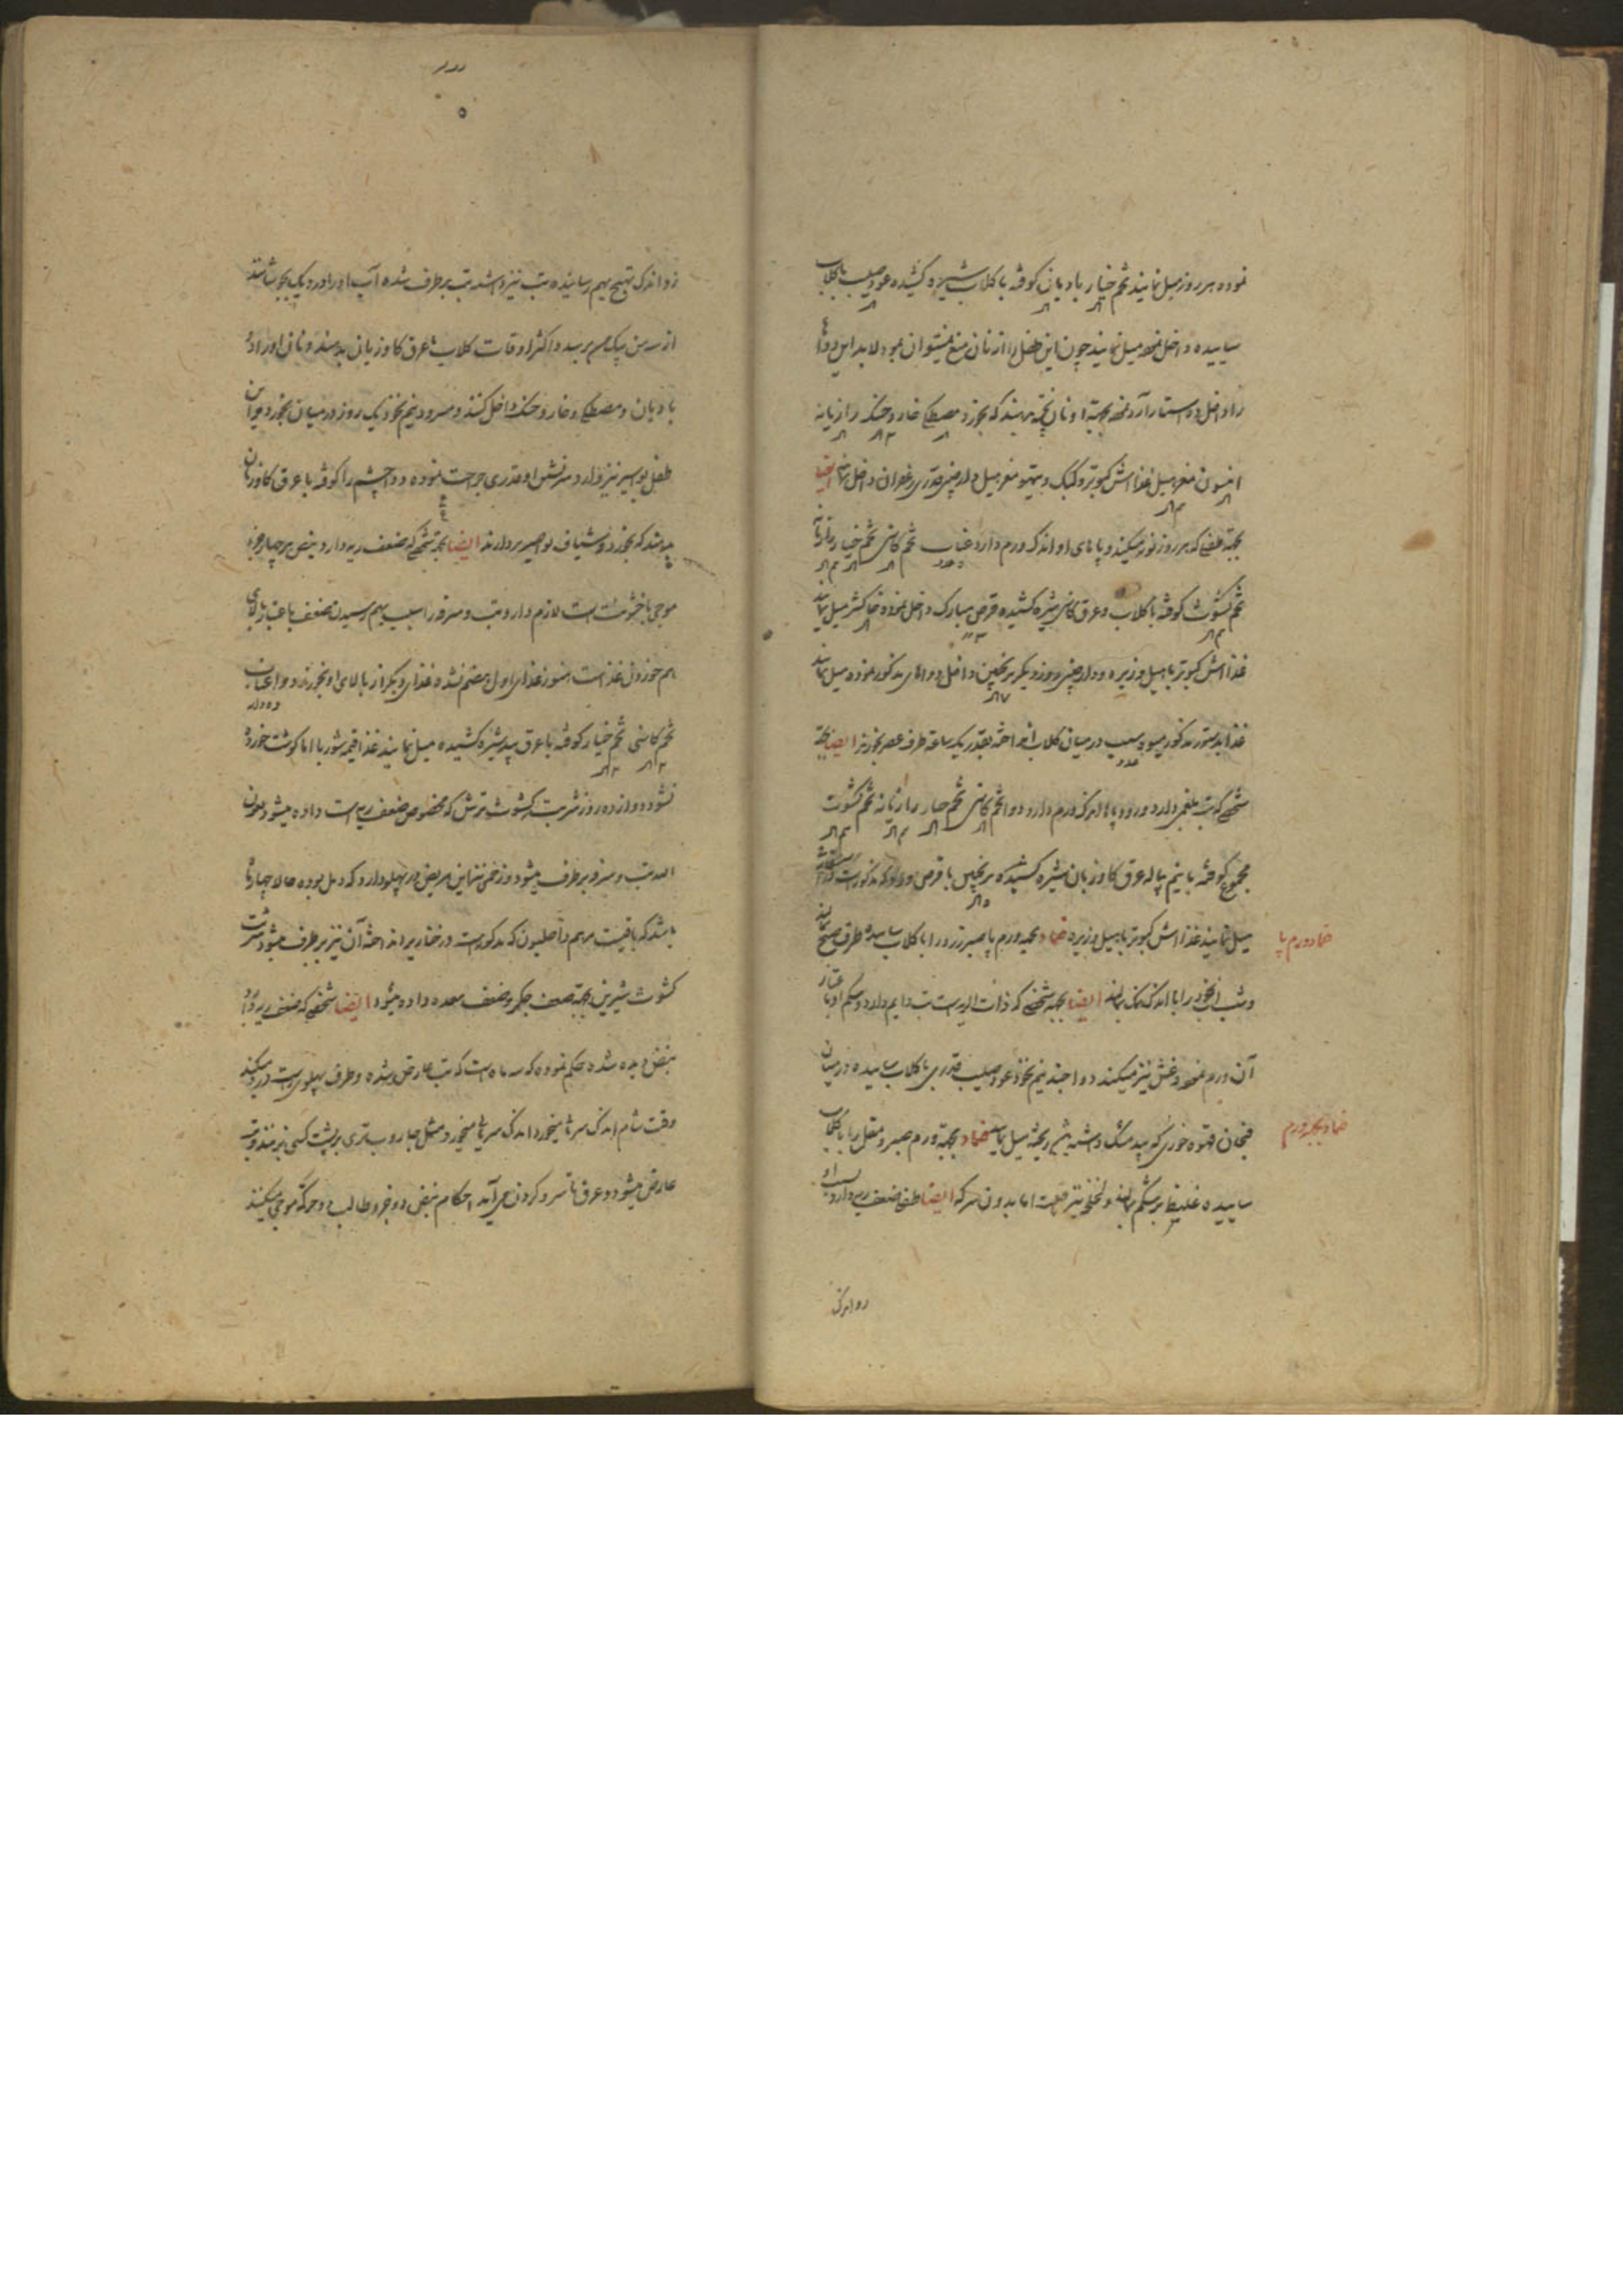 نموده هر روز میل نمایند تخم خیار بادیان کوفته با کلاب شیره کشیده عود صلیب با کلاب
ساییده داخل نموده میل نمایند چون این طفل را از نان منع نمیتوان نمود لابد این دواها
را داخل دو استار آرد نموده بجهة او نان پخته بدهند که بخورد مصطکی خار و خسک رازیانه
انیسون مغز میل غذا آش کبوتر و کبک و تیهو مغز میل دارچینی قدری زعفران داخل نمایند ایضا
بجهة طفلی که هر روز نوبه میکند و پاهای او اندک ورم دارد عناب تخم کاسنی تخم خیار رازیانه
تخم کشوث کوفته با کلاب و عرق کاسنی شیره کشیده قرص مبارک داخل نموده خاکشی میل نمایند
غذا آش کبوتر با میل و زیره و دارچینی روز دیگر ترنجبین داخل دواهای مذکور نموده میل نمایند
غذا بدستور مذکور میوه سیب در میان کلاب انداخته بقدر یک ساعة طرف عصر بخورند ایضا بجهة
شخصی که تب بلغمی دارد و رو و پاها اندک ورم دارد دوا تخم کاسنی تخم خیار رازیانه تخم کشوث
مجموع کوفته با نیم پیاله عرق کاوزبان شیره کشیده ترنجبین با قرص
میل نمایند غذا آش کبوتر با میل و زیره ضماد بجهة ورم پا صبر زرد را با کلاب ساییده طرف صبح بمالند
ضماد ورم پا
و شب انجیر را با اندک نمک بمالند ایضا بجهة شخصی که ذات الریه است تب دایم دارد و شکم او
آن ورم نموده غش نیز میکند دوا جند نیم نخود عود صلیب قدری با کلاب ساییده در میان
فنجان قهوه خوری که بید مشک داشته باشد ریخته میل نمایند ضماد بجهة ورم صبر و مقل را با کلاب
ضماد بجهة ورم
ساییده غلیظ بر شکم بمالند و لخلخه نیز اما بدون سرکه ایضا طفلی ضعف ریه دارد بسبب او
رو اندک
رو اندک تهیج بهم رسانیده تب نیز داشته تب بر طرف شده آب او را در دیک بجوشانند
از سه من یک من برسد و اکثر اوقات کلاب با عرق کاوزبان بدهند و نان او را در
بادیان و مصطکی و خار و خسک داخل کنند و سرو و نیم نخود یک روز در میان بخورد و این
طفل بواسیر نیز دارد و سر نشین او قدری جراحت نموده دو را کوفته با عرق کاوزبان
میدهند که بخورد و شیاف بواسیر بردارند ایضا بجهة شخصی که ضعف ریه دارد و نبض هر چهار جزء
موجی با خشونت است لازم دارد تب و سرفه را بسبب بهم رسیدن ضعف باعتبار بالای
هم خوردن غذاست هنوز غذای اول هضم نشده غذای دیگر از بالای او بخورند دوا عناب
تخم کاسنی تخم خیار کوفته با عرق بید شیره کشیده میل نمایند غذا قیمه شوربا اما کوشت خورده
نشود دوازده روز شربت کشوث ترش که مخصوص ضعف ریه است داده میشود بعون
الله تب و سرفه بر طرف میشود و زخمی نیز این مریض در پهلو دارد که دمل بوده حالا چهار ماه
باشد که باقیست مرهم داخلیون که مذکورست در خنازیر انداخته آن نیز بر طرف میشود شربت
کشوث شیرین بجهة ضعف جکر و ضعف معده داده میشود ایضا شخصی که ضعف ریه دارد
نبض دیده شده حکم نموده که سه ماه است که تب عارض شده و طرف پهلوی راست درد میکند
وقت شام اندک سرما میخورد اندک سرمایی میخورد و مثل جاروب تری بر پشت کسی بزنند و تب
عارض میشود و عرق تا سرد کردن می آید احکام نبض دو جزو طالب و حرکة موجی میکنند